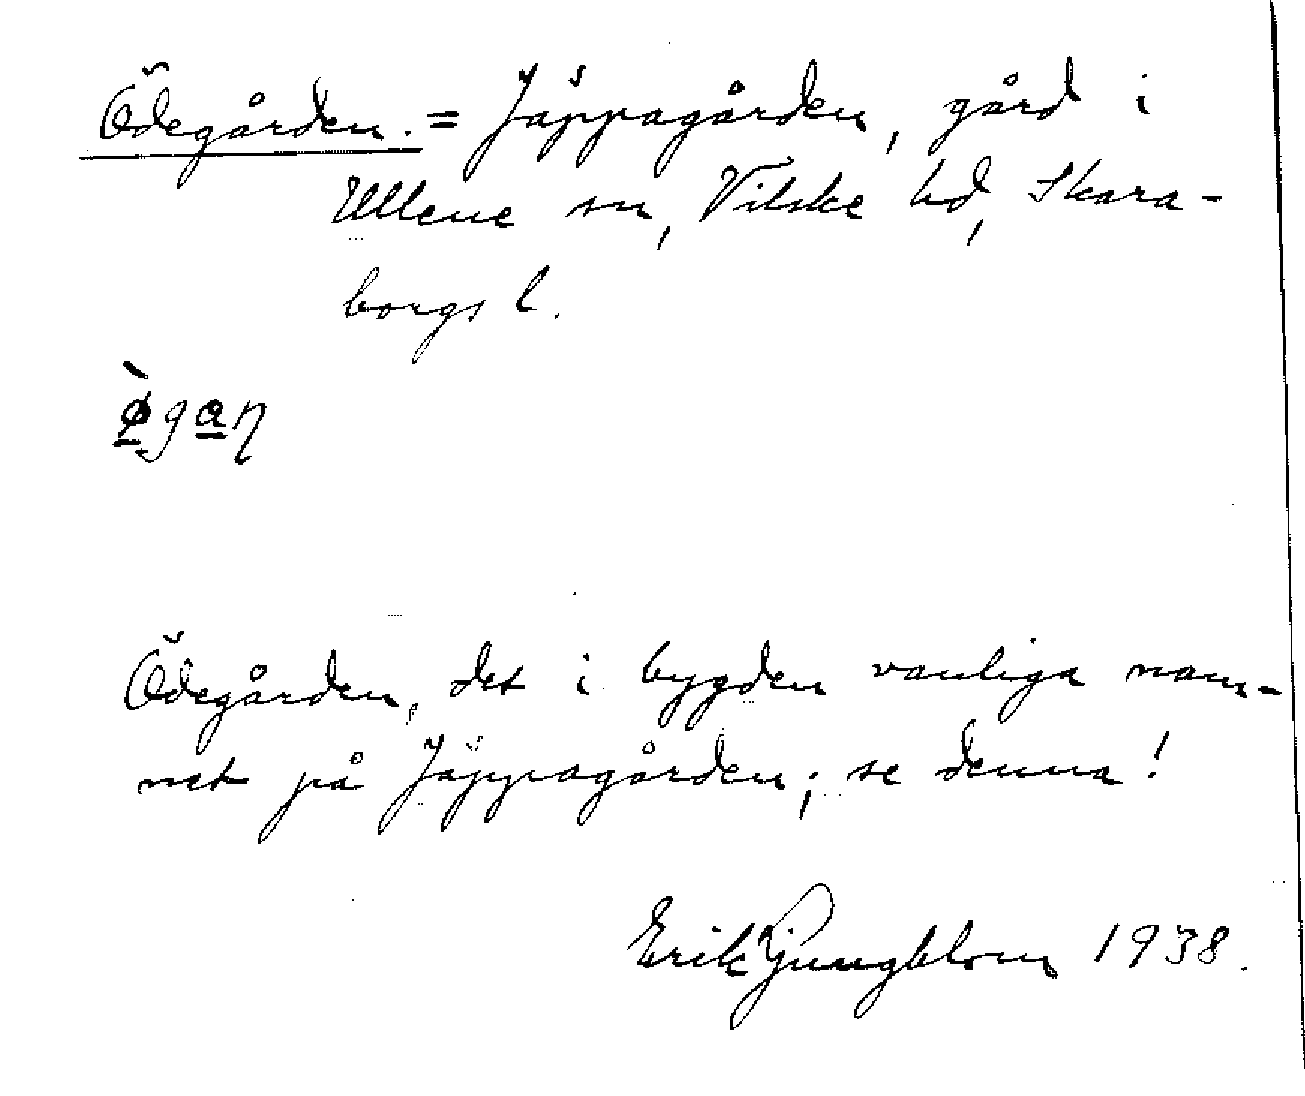 Ödegården. = Jäppagården, gård i
Ullene sn, Vilske hd, Skara-
borgs l.
ø̀gaŋ
Ödegården, det i bygden vanliga nam-
net på Jäppagården; se denna!
Erik Ljungblom 1938.